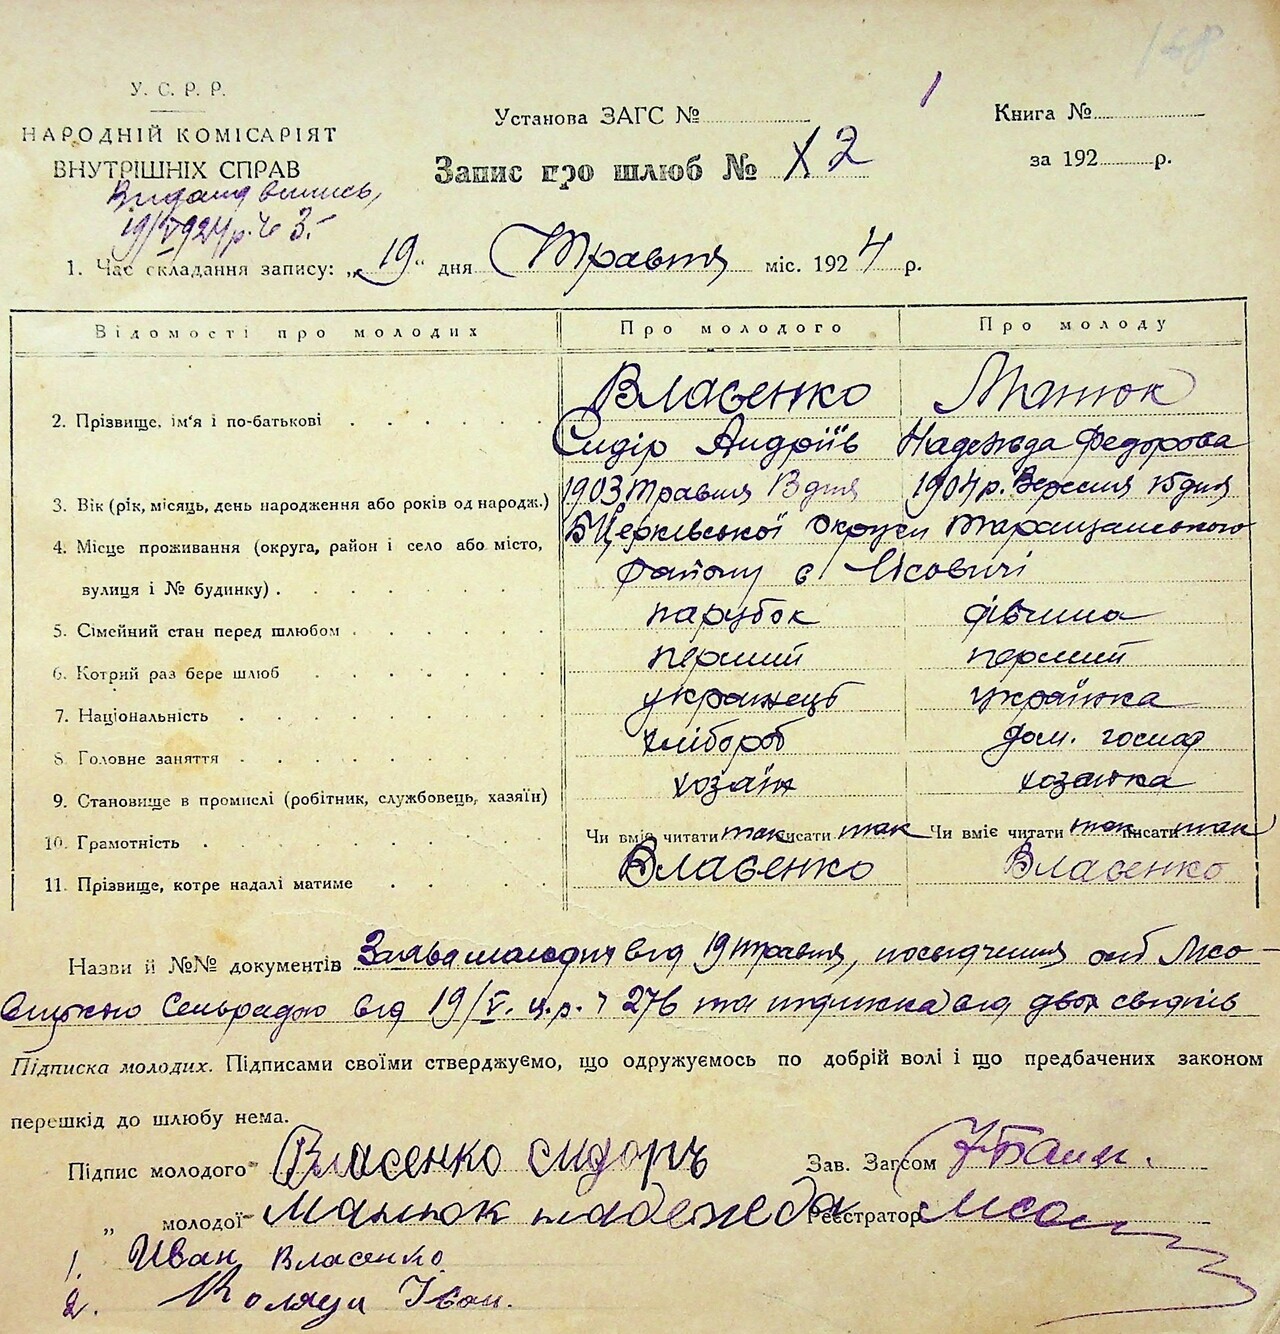 148
У. С. Р. Р.
НАРОДНІЙ КОМІСАРІЯТ
ВНУТРІШНІХ СПРАВ
Установа ЗАГС №
1
Книга №
Запис про шлюб № 12
за 192 р.
Видана випись,
19/V 924 р. ч 3.
1. Час складання запису: „19“ дня Травня міс. 1924 р.
Відомості про молодих Про молодого Про молоду
2. Прізвище, ім'я і по-батькові Власенко Манюк
Сидір Андріїв Надежда Федорова
3. Вік (рік, місяць, день народження або років од народж.) 1903 травня 13 дня 1904 р. Вересня 15 дня
4. Місце проживання (округа, район і село або місто, БЦерківської округи Таращанського
вулиця і № будинку) району с Лісовичі
5. Сімейний стан перед шлюбом парубок дівчина
6. Котрий раз бере шлюб перший перший
7. Національність українець українка
8. Головне заняття хлібороб дом. господ
9. Становище в промислі (робітник, службовець, хазяїн) хозаїн хозаїка
10. Грамотність Чи вміє читати так писати так Чи вміє читати так писати так
11. Прізвище, котре надалі матиме Власенко Власенко
Назви й №№ документів Заява молодих від 19 травня, посвідчення Лісо-
Сельрадою від 19/V. ц.р. ч 276 та підписка від двох свідків
Підписка молодих. Підписами своїми стверджуємо, що одружуємось по добрій волі і що предбачених законом
перешкід до шлюбу нема.
Підпис молодого Власенко Сидоръ Зав. Загсом
„ молодої Манюк надежда Реєстратор
1. Иван Власенко
2. Коляди Іван.